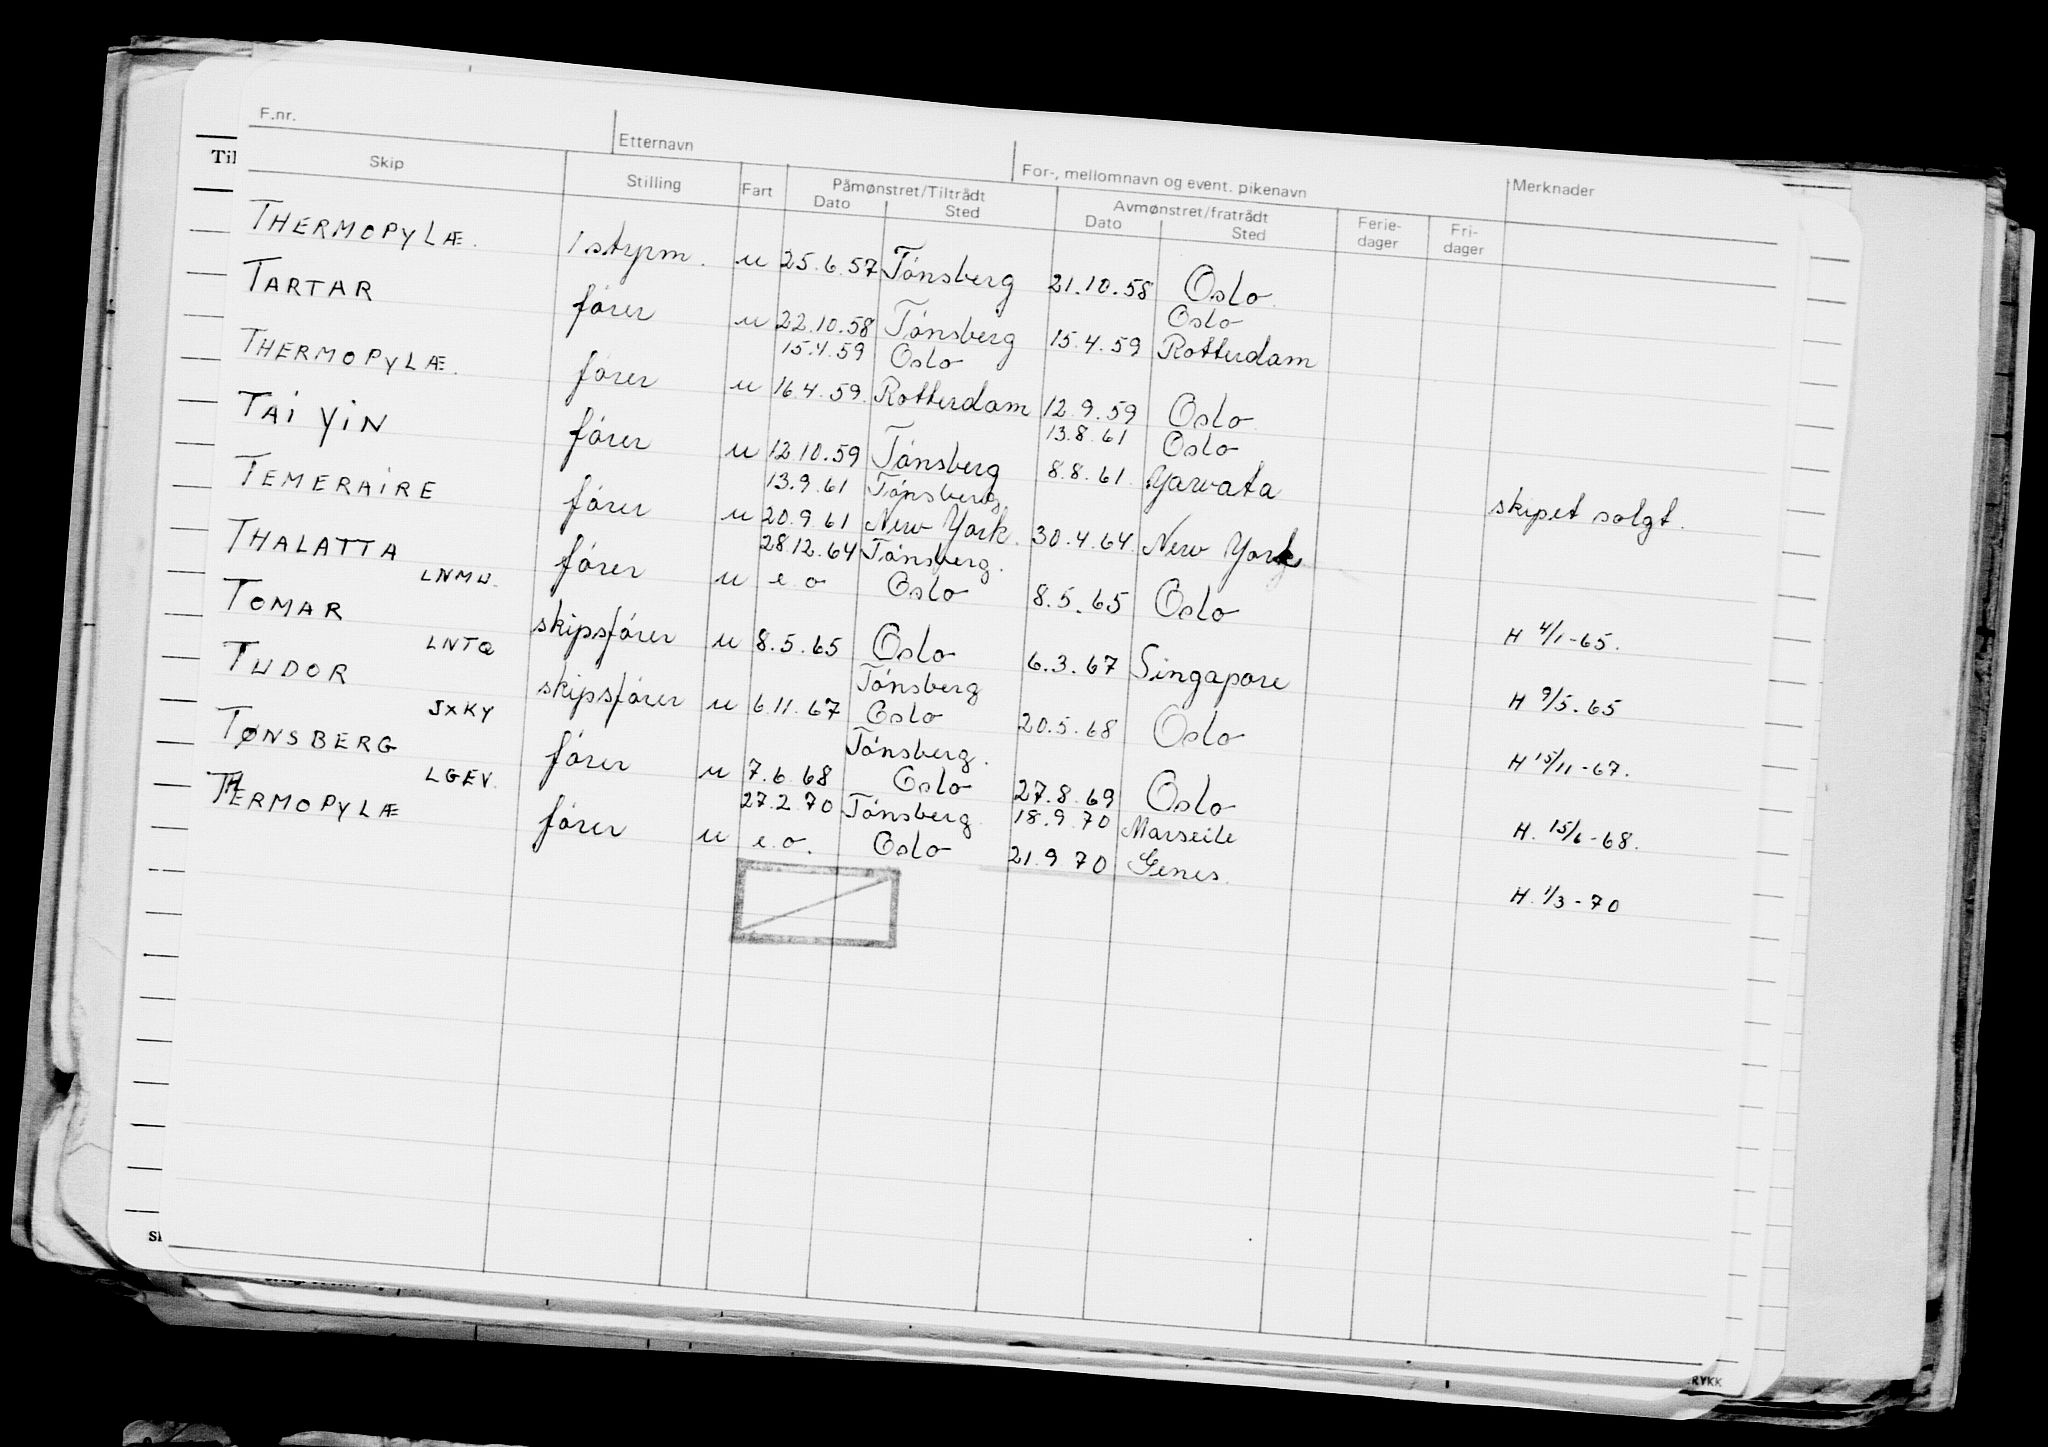 F.nr. Etternavn For-, mellomnavn og event. pikenavn
Til
Skip Stilling Fart Påmønstret/Tiltrådt Dato Sted Avmønstret/fratrådt Dato Sted Ferie-dager Fri-dager Merknader
THERMOPYLÆ. 1 styrm. u 25.6.57 Tønsberg 21.10.58 Oslo.
Oslo
TARTAR fører u 22.10.58 Tønsberg 15.4.59 Rotterdam
15.4.59 Oslo
THERMOPYLÆ. fører u 16.4.59. Rotterdam 12.9.59 Oslo.
13.8.61 Oslo
TAI YIN fører u 12.10.59 Tønsberg 8.8.61. Yawata skipet solgt.
13.9.61 Tønsberg
TEMERAIRE fører u 20.9.61 New York. 30.4.64. New York
28.12.64 Tønsberg.
THALATTA LNMU. fører u e.o Oslo 8.5.65 Oslo H 4/1-65.
TOMAR LNTQ skipsfører u 8.5.65 Oslo 6.3.67 Singapore H 9/5-65
Tønsberg
TUDOR JXKY skipsfører u 6.11.67 Oslo 20.5.68 Oslo H 15/11-67.
Tønsberg.
TØNSBERG LGEV. fører u 7.6.68 Oslo 27.8.69 Oslo H. 15/6-68.
27.2.70 Tønsberg. 18.9.70 Marseile
THERMOPYLÆ fører u e.o. Oslo 21.9.70 Genes. H. 1/3-70
RYKK